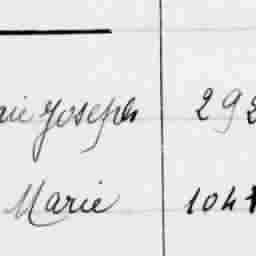 Joseph 292
Marie 104